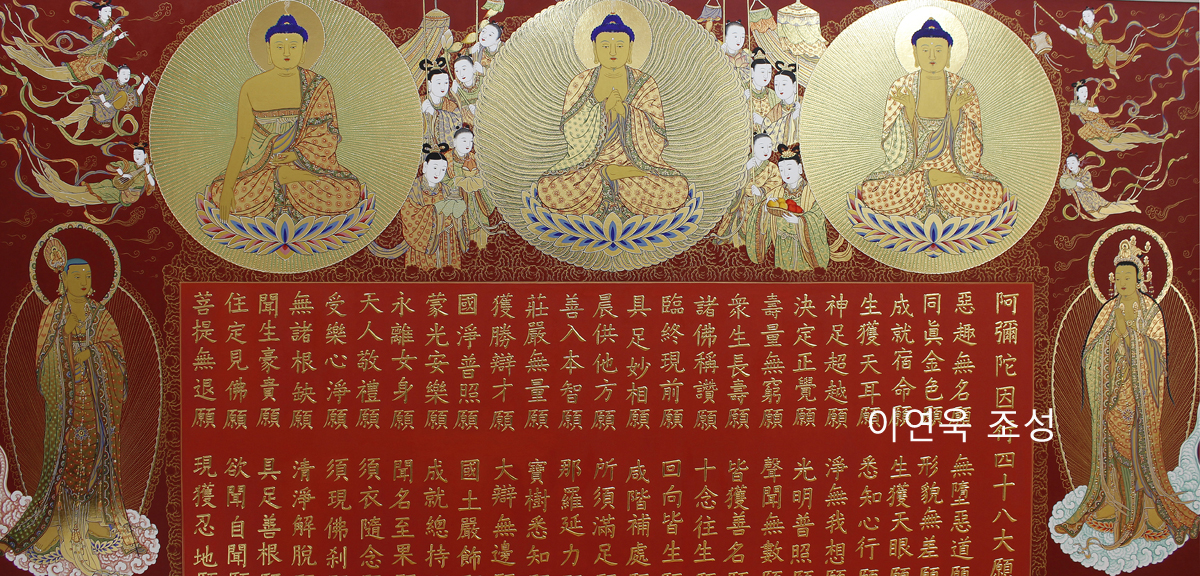 阿彌陀因行四十八大願
惡趣無名願 無墮惡道願
同眞金色願 形貌無差願
成就宿命願 生獲天眼願
生獲天耳願 悉知心行願
神足超越願 淨無我想願
決定正覺願 光明普照願
壽量無窮願 聲聞無數願
衆生長壽願 皆獲善名願
諸佛稱讚願 十念往生願
臨終現前願 回向皆生願
具足妙相願 咸階補處願
晨供他方願 所須滿足願
善入本智願 那羅延力願
莊嚴無量願 寶樹悉知願
獲勝辯才願 大辯無邊願
國淨普照願 國土嚴飾願
蒙光安樂願 成就總持願
永離女身願 聞名至果願
天人敬禮願 須衣隨念願
受樂心淨願 須現佛刹願
無諸根缺願 清淨解脫願
聞生豪貴願 具足善根願
住定見佛願 欲聞自聞願
菩提無退願 現獲忍地願
이연욱 조성